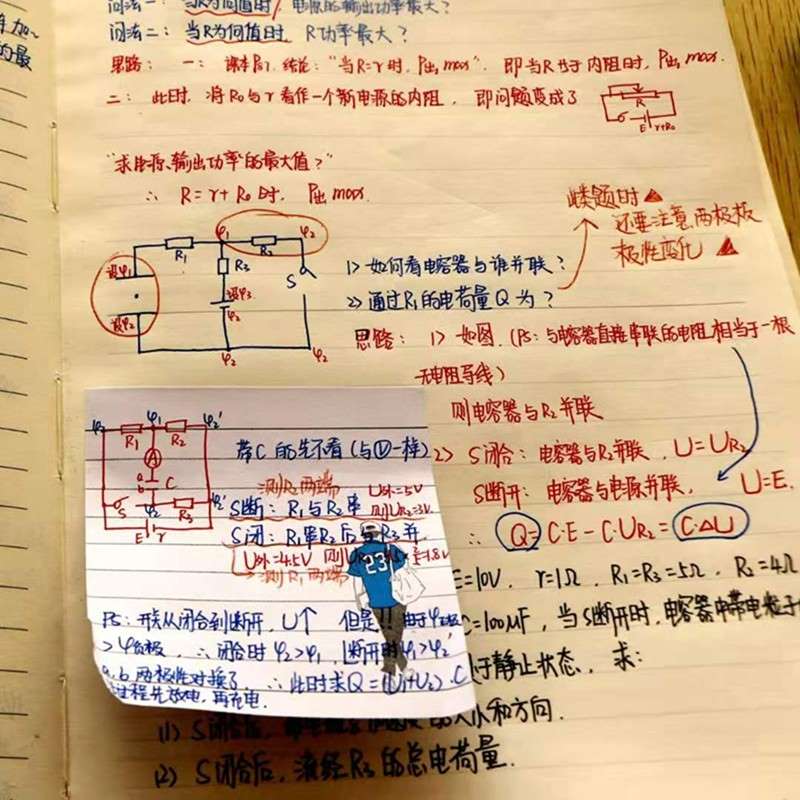 问法一：当R为何值时，电源的输出功率最大？
问法二：当R为何值时，R功率最大？
思路：一：课本P61 结论："当R=r时，P出max"．即当R等于内阻时，P出max．
二：此时，将R0与r看作一个新电源的内阻，即问题变成了
R
E r+R0
"求电源输出功率的最大值？"
∴ R=r+R0时，P出max
此类题时
还要注意两极板
极性变化
φ1 φ2
R1 R2
R3 S
设φ1
设φ2
设φ3
φ2
φ2 φ2
1> 如何看电容器与谁并联？
2> 通过R1的电荷量Q为？
思路：1> 如图．（PS：与电容器直接串联的电阻相当于一根
无电阻导线）
则电容器与R2并联
2> S闭合：电容器与R2并联，U=UR2
S断开：电容器与电源并联，U=E．
∴ Q=C·E-C·UR2=C·ΔU
φ2 φ1 φ2'
R1 R2
A
a
b C
S R3 φ2'
E r
带C的先不看（与V一样）
测R2两端 U外=5V
S断：R1与R2串 则UR2=3V
S闭：R1串R2后与R3并
U外=4.5V 则UR1=4.5×=1.8V
→测R1两端
23
PS：开关从闭合到断开，U↑ 但是!! 由于φ正极
>φ负极，∴闭合时φ2>φ1，断开时φ1>φ2'
a、b两极性对换了，∴此时求Q=(U1+U2)·C
过程先放电，再充电．
E=10V，r=1Ω，R1=R3=5Ω，R2=4Ω
C=100μF，当S断开时，电容器中带电粒子
于静止状态，求：
(1) S闭合后，的大小和方向．
(2) S闭合后，流经R3的总电荷量．